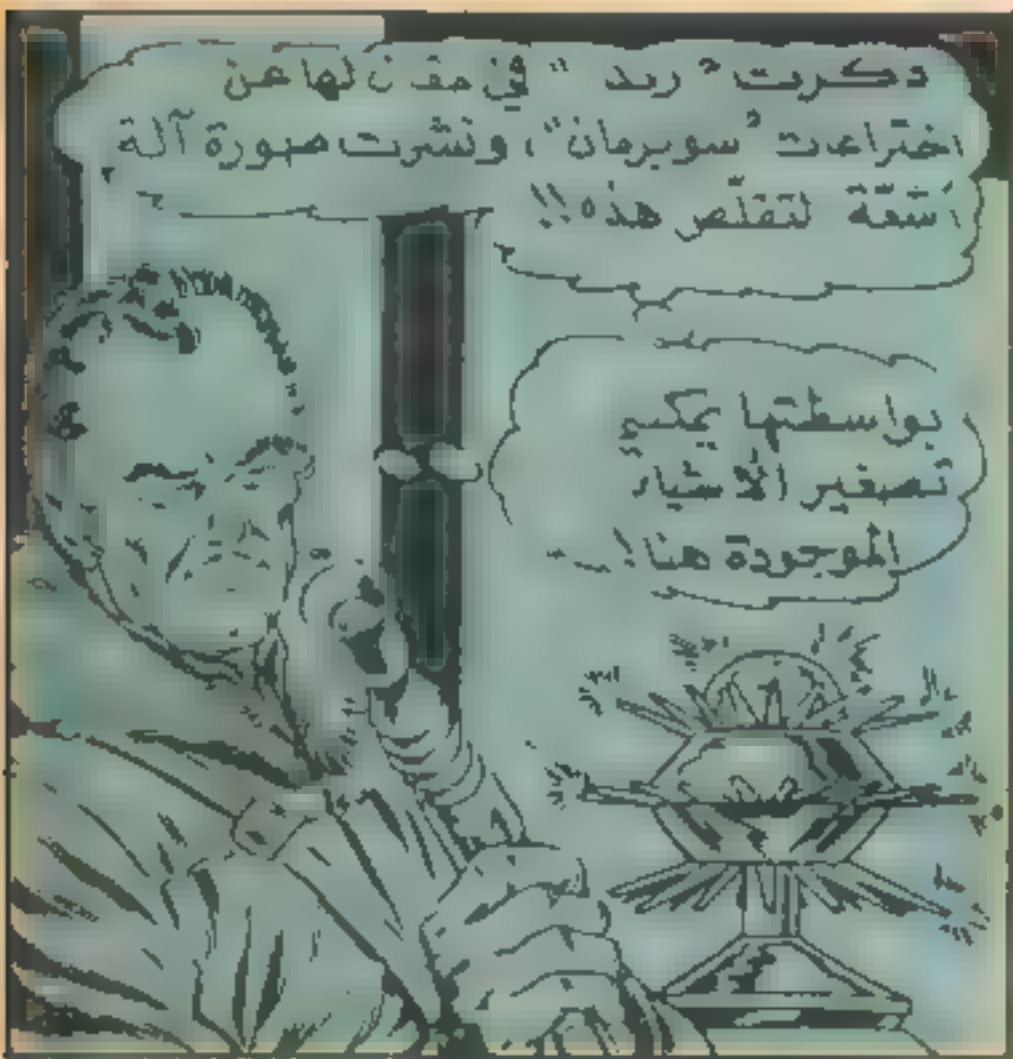 ذكرت "رند" في مقال لها عن
اختراعات "سوبرمان"، ونشرت صورة آلة
أشعة لتقلّص هذه!!
بواسطتها يمكنني
تصغير الأشياء
الموجودة هنا!